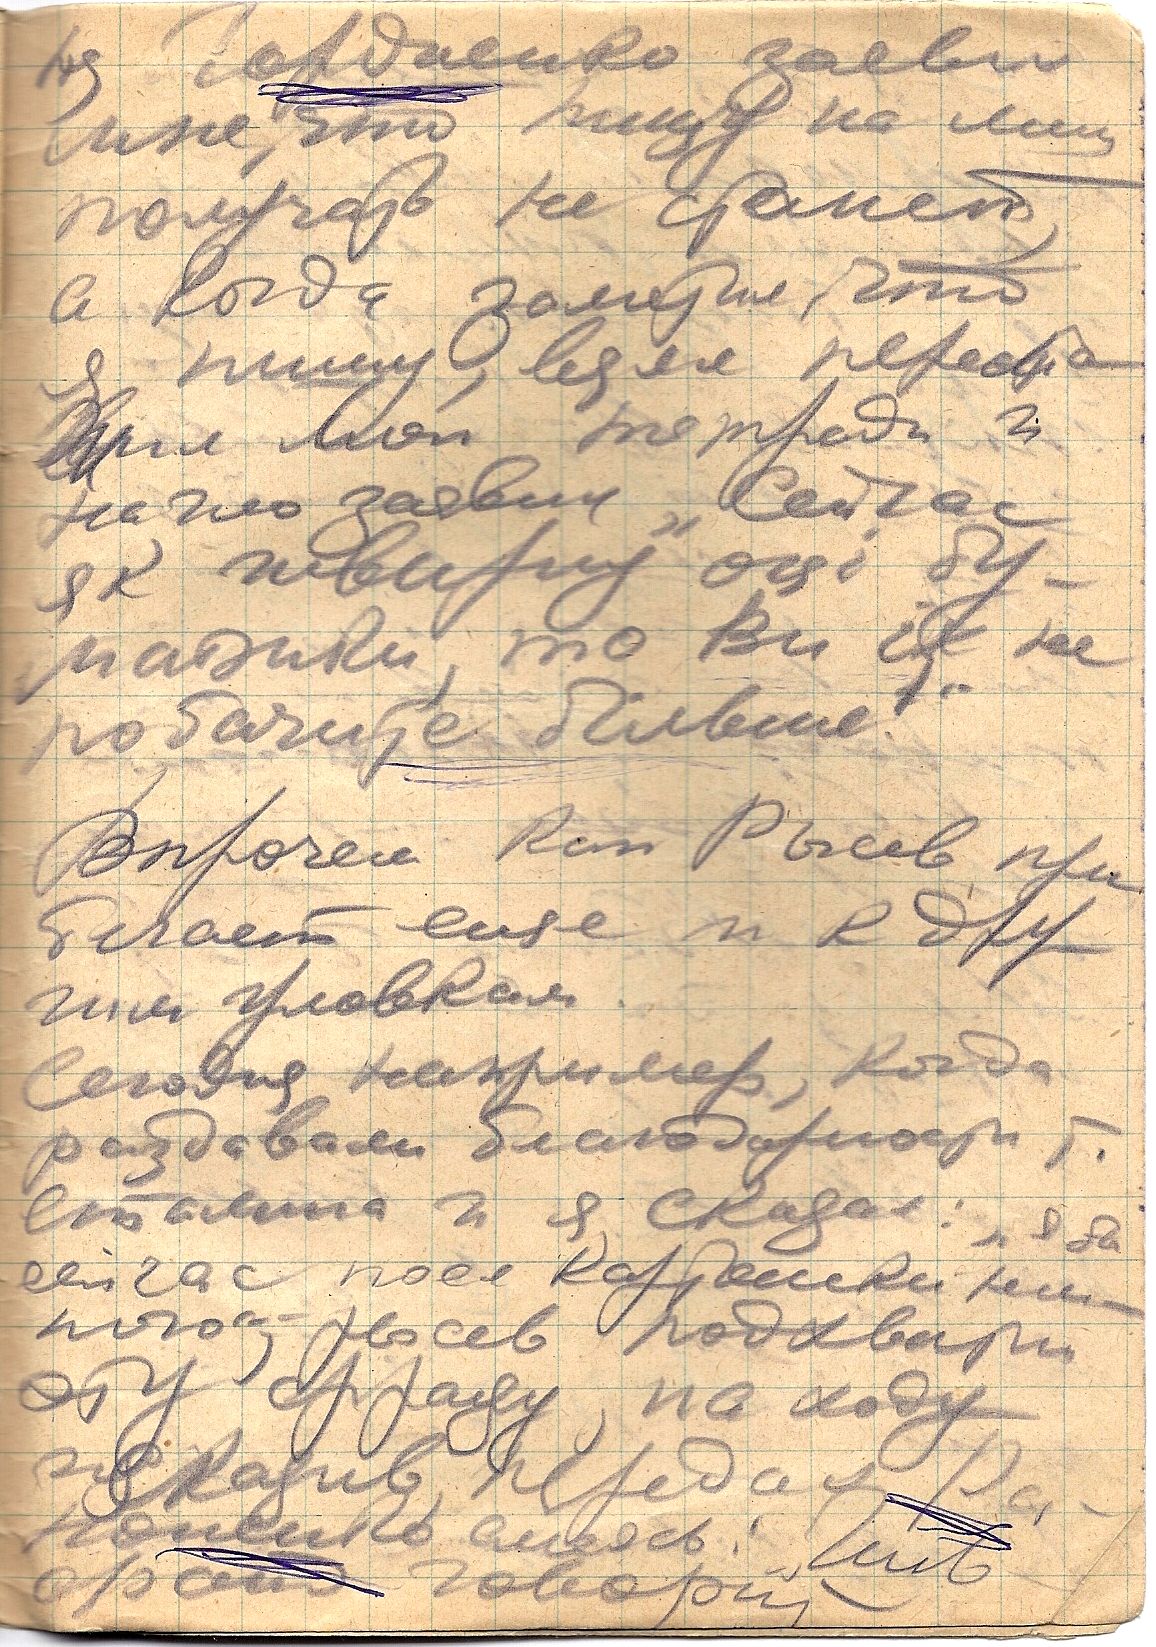 ня Гордиенко заявил
мне, что пищу на меня
получать не станет,
а когда заметил, что
я пишу, взял
мои тетради и
нагло заявил „Сейчас
як пошвырну оці бу-
мажки, то Ви їх не
побачите більше."
Впрочем как Рысев при
бегает еще и к дру
гим уловкам.
Сегодня например, когда
раздавали благодарности т.
Сталина и я сказал: „я бы
сейчас поел картошки нем
ного", Рысев подхватил
эту фразу, на ходу
исказив, передал
смеясь:
говорит,